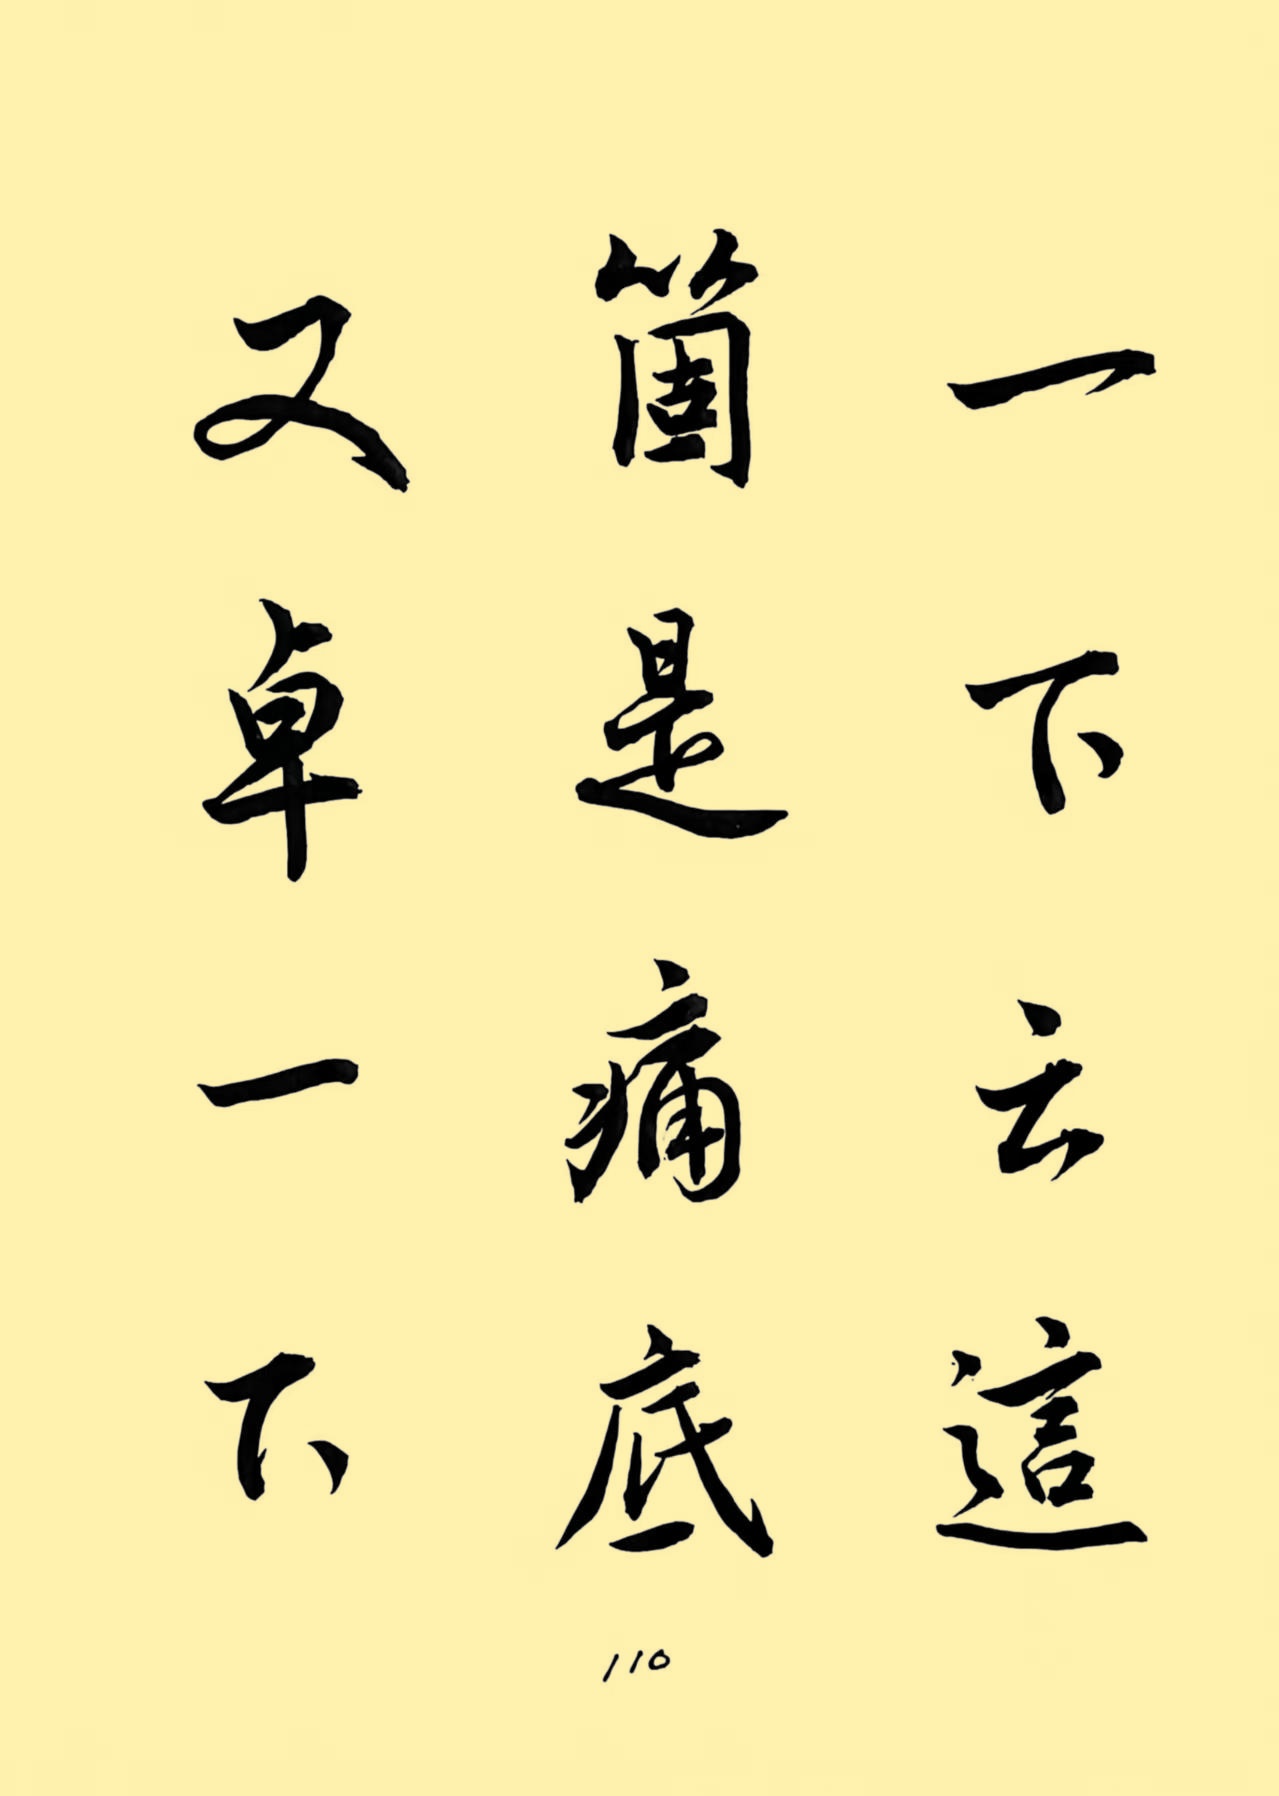 一下云這
箇是痛底
又卓一下
110